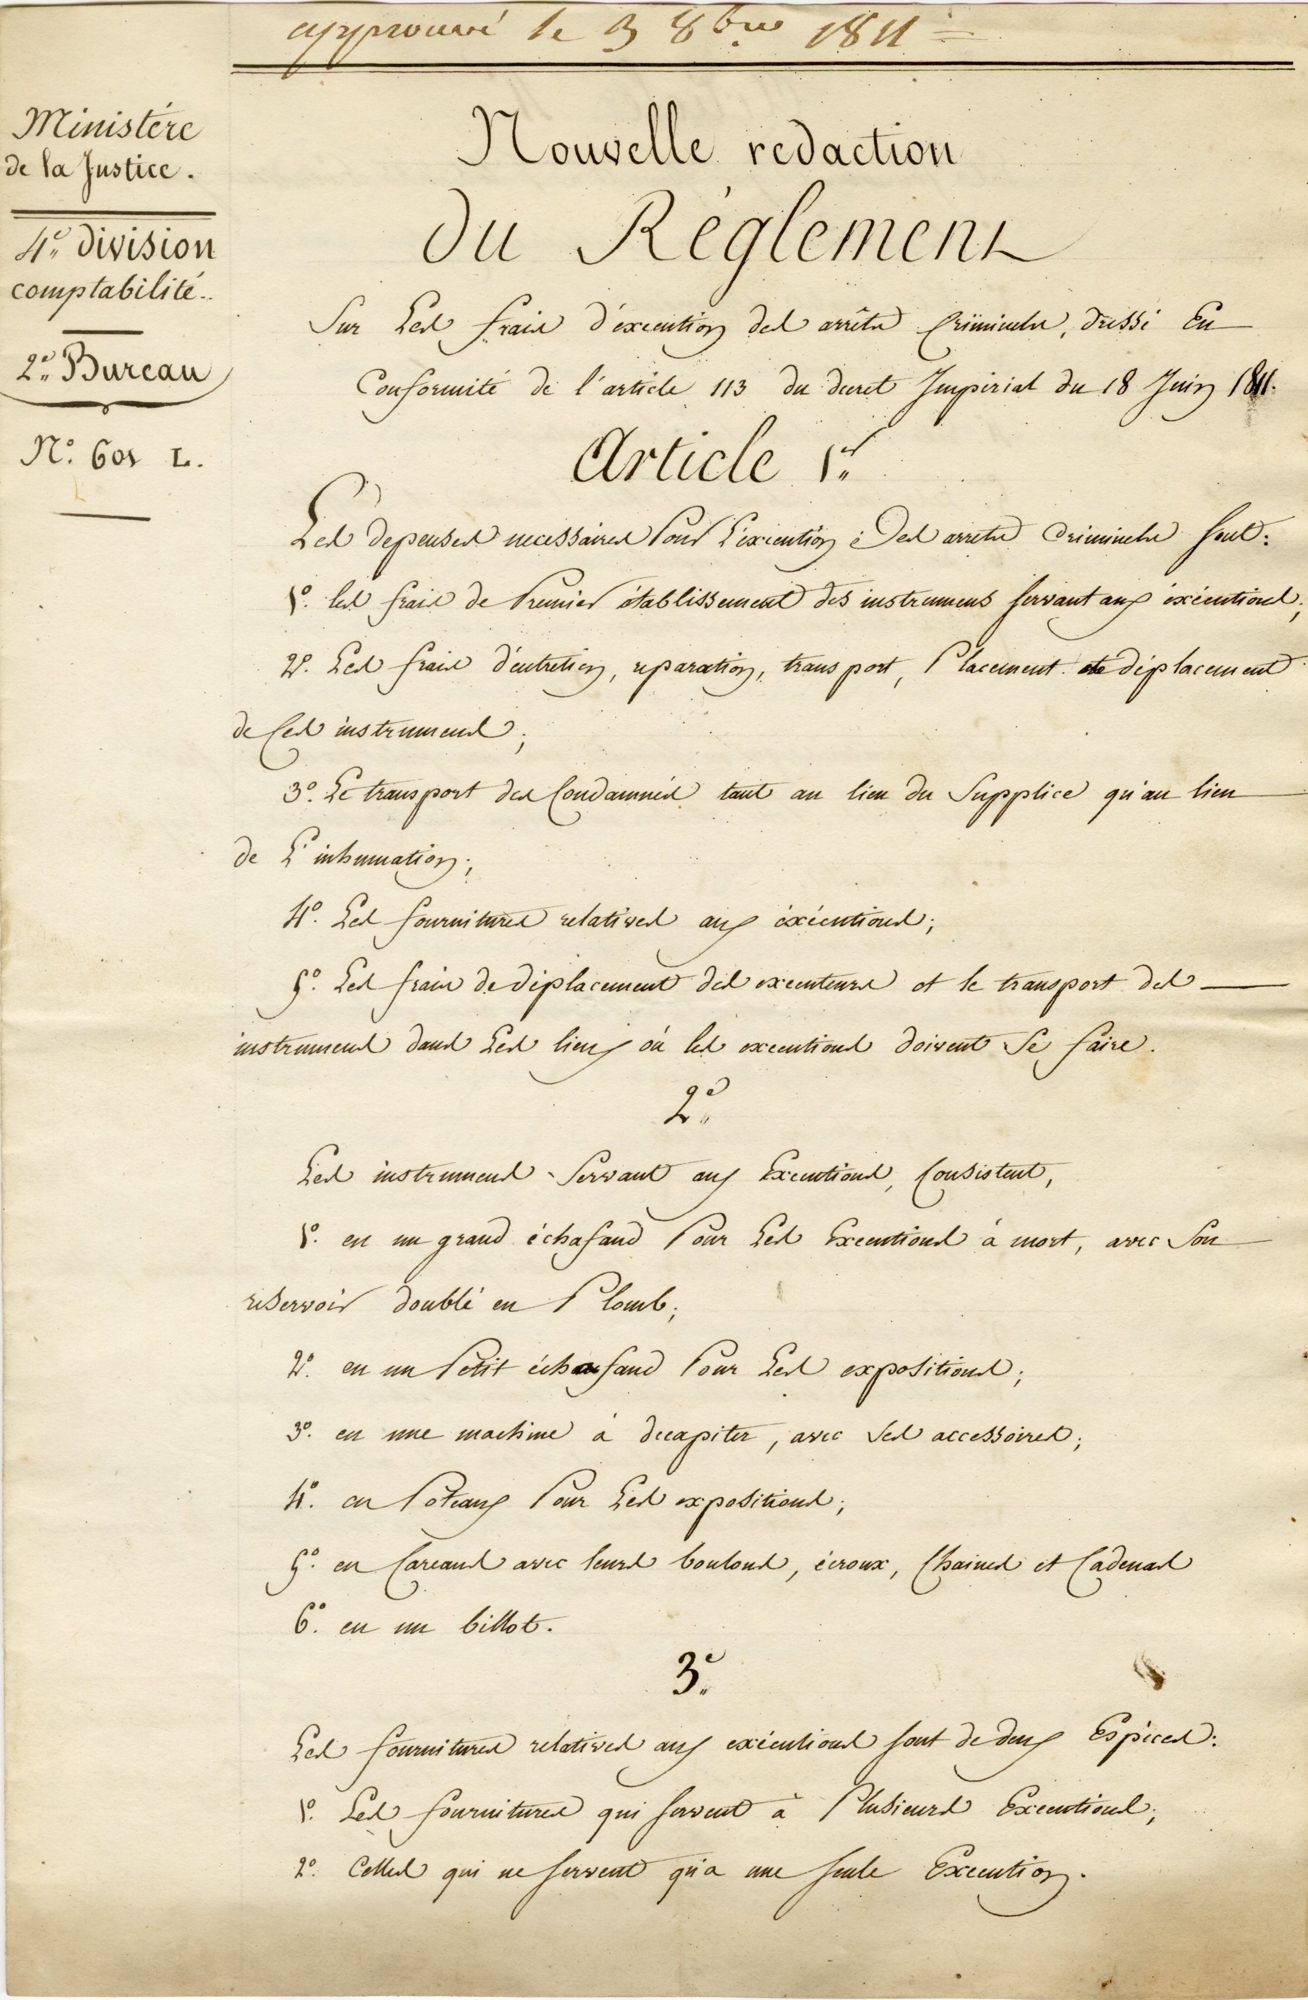 approuvé le 3 8bre 1811
Ministére
de la Justice.
4e. division
comptabilité..
2e. Bureau
No. 601 L.
Nouvelle redaction
du Réglement
Sur Les frais d'éxecution des arrêts Criminels, dressé En
Conformité de l'article 113 du decret Impérial du 18 Juin 1811.
Article 1er.
Les dépenses necessaires Pour L'éxécution Des arrets Criminels sont:
1o. les frais de Premier établissement des instrumens servant aux éxécutions;
2o. Les frais d'entretien, reparation, transport, Placement et déplacement
de Ces instrumens;
3o. Le transport des Condamnés tant au lieu du Supplice qu'au lieu
de L'inhumation;
4o. Les fournitures relatives aux éxécutions;
5o. Les frais de déplacement des executeurs et le transport des
instrumens dans Les lieux où les executions doivent Se faire.
2e.
Les instrumens Servant aux Executions, Consistent,
1o. en un grand échafaud Pour Les Executions à mort, avec Son
reservoir doublé en Plomb;
2o. en un Petit échafaud Pour Les expositions;
3o. en une machine à decapiter, avec Ses accessoires;
4o. en Poteaux Pour Les expositions;
5o. en Carcans avec leurs boulons, écroux, Chaines et Cadenas
6o. en un billot.
3e.
Les fournitures relatives aux exécutions sont de deux Espéces:
1o. Les fournitures qui servent à Plusieurs Executions;
2o. Celles qui ne servent qu'a une seule Execution.